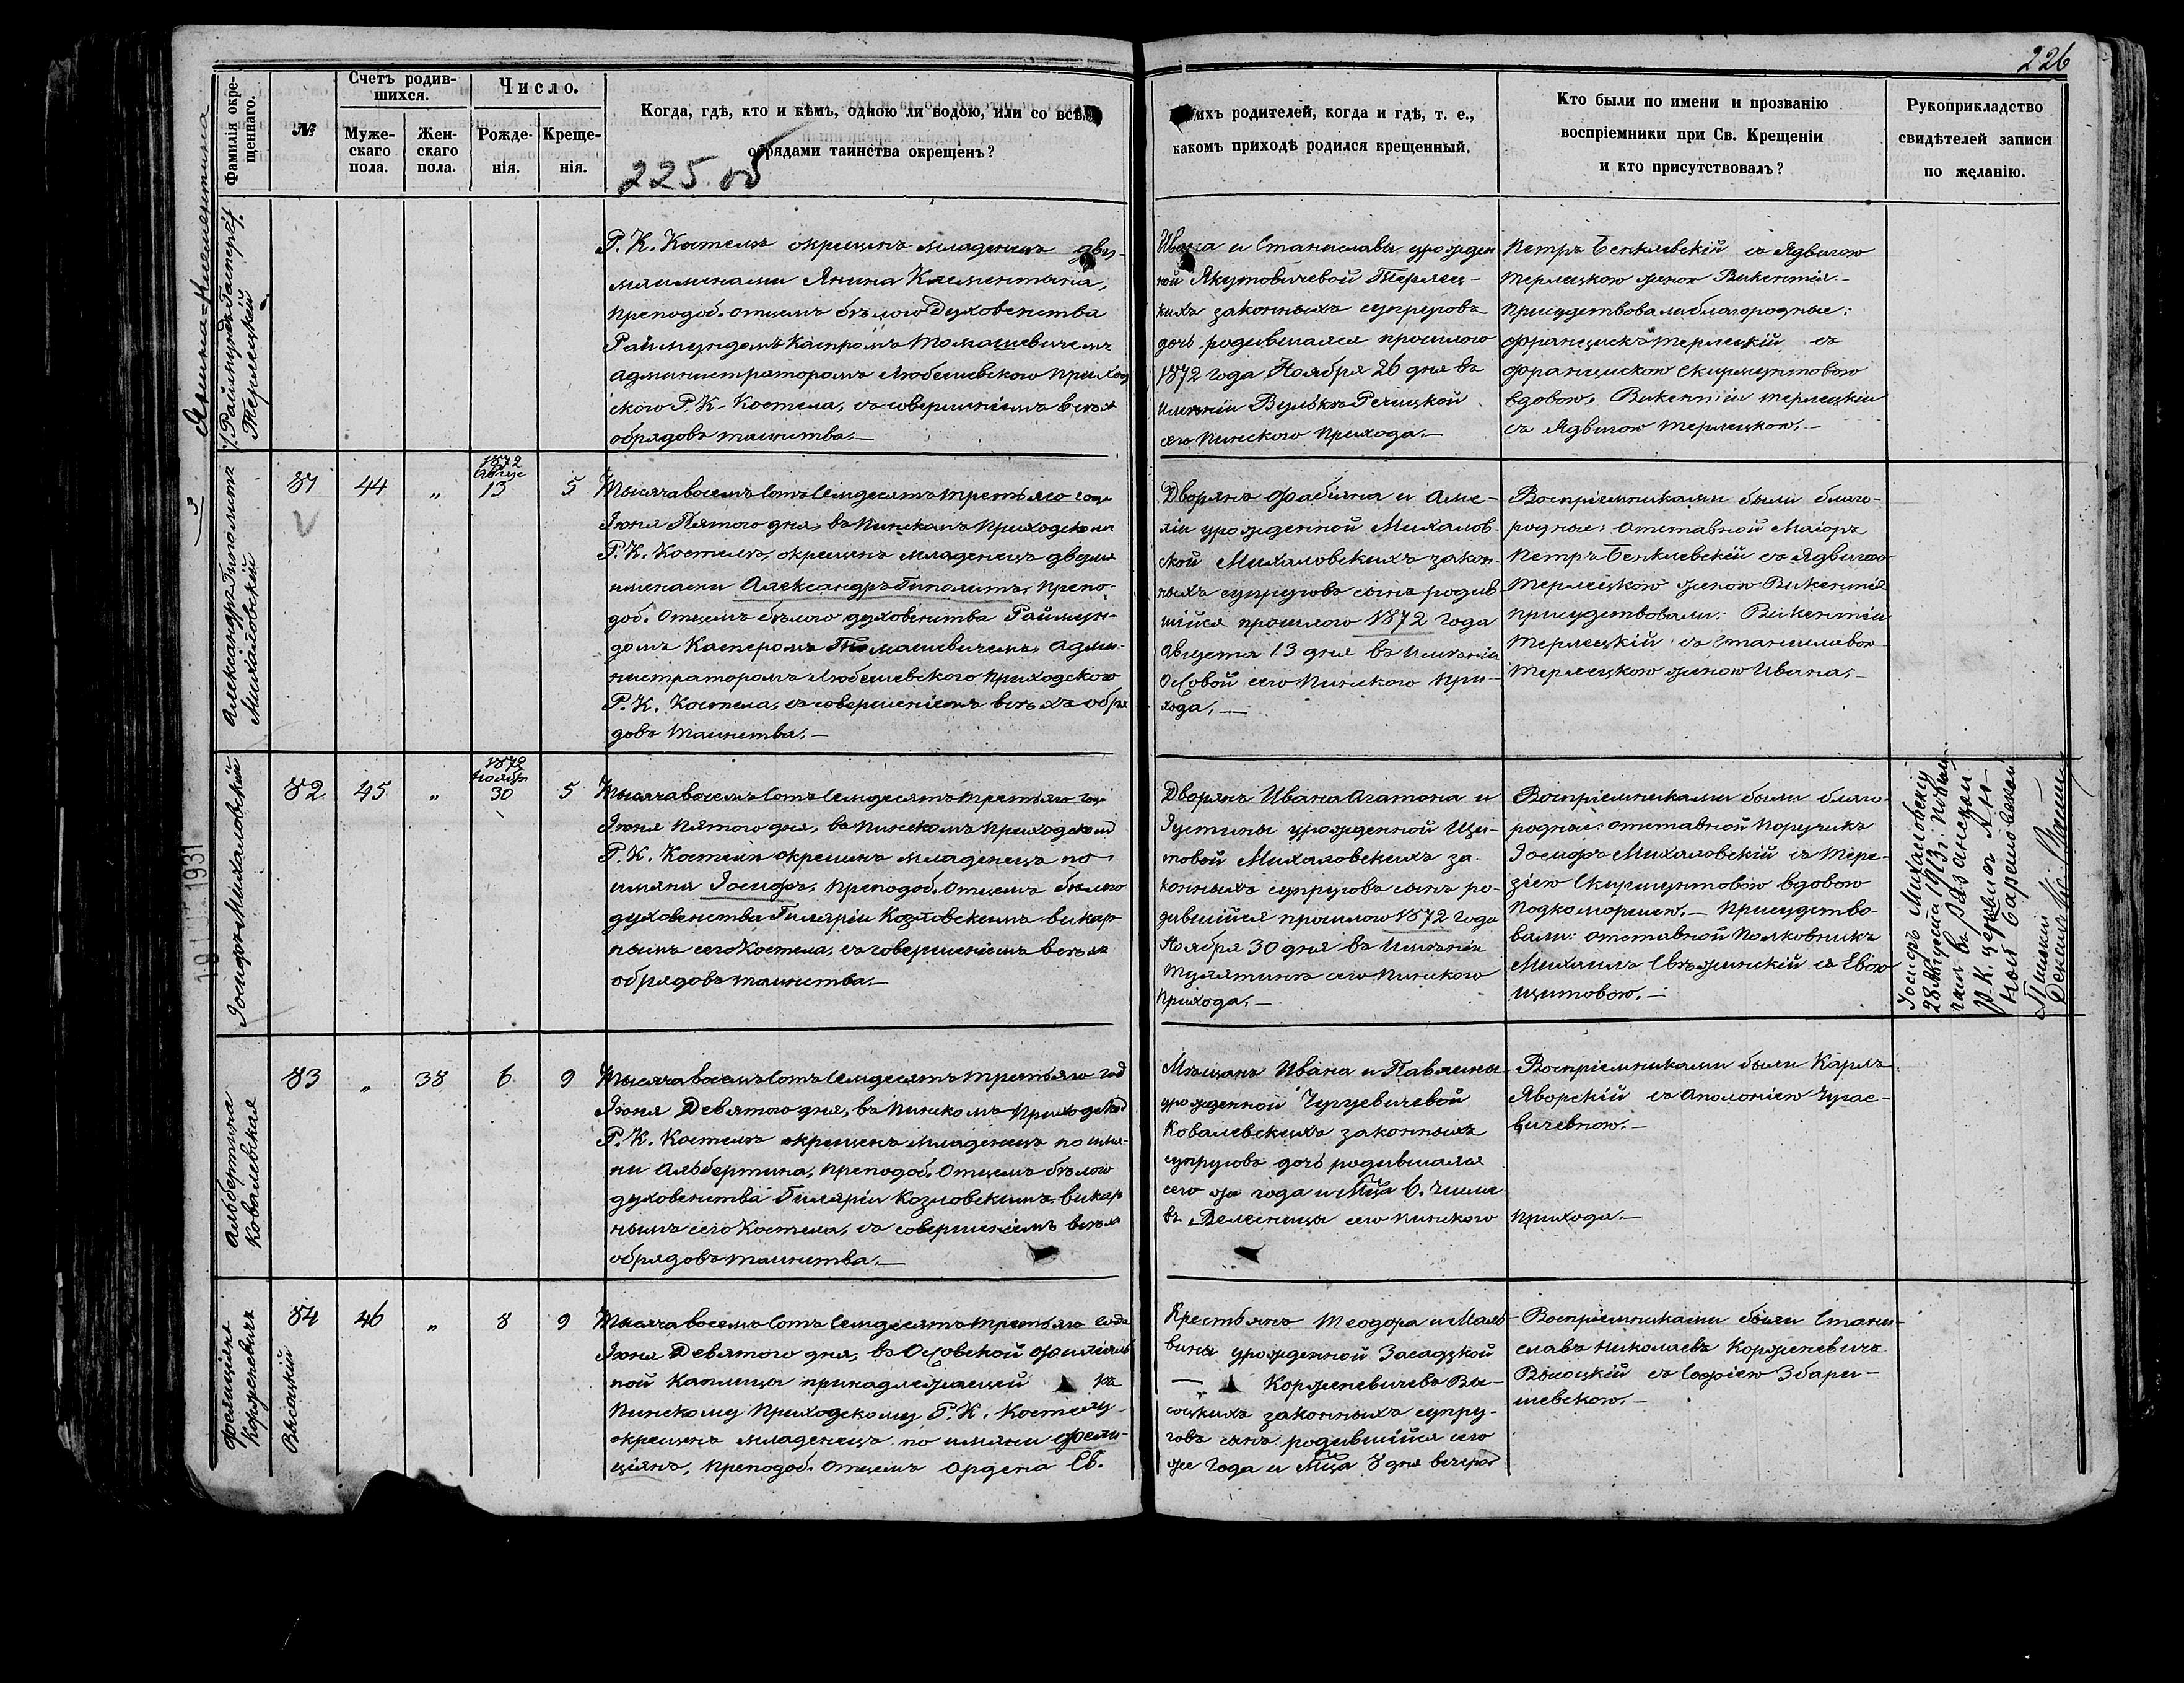 226
Фамилія окре-
щеннаго.
№
Счетъ родив-
шихся.
Муже-
скаго
пола.
Жен-
скаго
пола.
Число.
Рожде-
нія.
Креще-
нія.
Когда, гдѣ, кто и кѣмъ, одною ли водою, или со всѣми
обрядами таинства окрещенъ?
225 об
какомъ приходѣ родился крещенный.
ихъ родителей, когда и гдѣ, т. е.,
Кто были по имени и прозванію
воспріемники при Св. Крещеніи
и кто присутствовалъ?
Рукоприкладство
свидѣтелей записи
по желанію.
Терлецкій
Р. К. Костелѣ окрещенъ младенецъ дву-
мя именами Янина Клементина,
преподоб. отцемъ бѣлого Духовенства
Раймундомъ Каспромъ Томашевичемъ
администраторомъ Любешевского приход
ского Р. К. Костела, съ совершеніемъ всѣхъ
обрядовъ таинства.—
Ивана и Станиславы урожден
ной Якутовичевой Терлец-
кихъ законныхъ супруговъ
дочь родившаяся прошлого
1872 года Ноября 26 дня въ
имѣніи Вулькѣ Речицкой
сего Пинского прихода.—
Петръ Бенклевскій съ Ядвигою
Терлецкою женою Викентія.—
Присудствовали благородные:
Францискъ Терлецкій съ
Францискою Скирмунтовою
вдовою, Викентій Терлецкій
съ Ядвигою Терлецкою.—
Александръ Гиполитъ
Михаловскій
81
44
„
1872
Авгус
13
5
Тысяча восемъ Сотъ Семдесятъ третьяго года
Іюня Пятого дня, въ Пинскомъ Приходскомъ
Р. К. Костелѣ, окрещенъ младенецъ двумя
именами Александръ Гиполитъ, препо-
доб. Отцемъ бѣлого духовенства Раймун-
домъ Касперомъ Томашевичемъ, Адми-
нистраторомъ Любешевского Приходского
Р. К. Костела, съ совершеніемъ всѣхъ обря
довъ таинства.—
Дворянъ Фабіяна и Аме-
ліи урожденной Михалов-
ской Михаловскихъ закон-
ныхъ супруговъ сынъ родив
шійся прошлого 1872 года
Августа 13 дня въ имѣніи
Осовой сего Пинского при-
хода.—
Воспріемниками были благо-
родные: отставной Маіоръ
Петръ Бенклевскій съ Ядвигою
Терлецкою женою Викентія
присудствовали: Викентій
Терлецкій съ Станиславою
Терлецкою женою Ивана.—
Іосифъ Михаловскій
82
45
„
1872
Ноябр
30
5
Тысяча восемъ Сотъ Семдесятъ третьяго года
Іюня Пятого дня, въ Пинскомъ Приходскомъ
Р. К. Костелѣ окрещенъ младенецъ по
имяни Іосифъ, преподоб. Отцемъ бѣлого
духовенства Гиляріи Козловскимъ викар
нымъ сего Костела, съ совершеніемъ всѣхъ
обрядовъ таинства.—
Дворянъ Ивана Агатона и
Іустины урожденной Щи-
товой Михаловскихъ за-
конныхъ супруговъ сынъ ро-
дившійся прошлого 1872 года
Ноября 30 дня въ имѣніи
Тулятинъ сего Пинского
Прихода.—
Воспріемниками были благо-
родные: отставной Поручикъ
Іосифъ Михаловскій съ Тере-
зіею Скирмунтовою вдовою
Подкоморыею.— Присудство-
вали: отставной Полковникъ
Михаилъ Свѣжинскій съ Евою
Щитовою.—
Іосифъ Михаловскій
28 Августа 1913 г.
Р. К. церкви
Пинскій
Деканъ
Альбертина
Ковалевская
83
„
38
6
9
Тысяча восемъ Сотъ Семдесятъ третьяго год
Іюня Девятого дня, въ Пинскомъ Приходском
Р. К. Костелѣ окрещенъ младенецъ по имя-
ни Альбертина, преподоб. Отцемъ бѣлого
духовенства Гиляріи Козловскимъ викар
нымъ сего Костела, съ совершеніемъ всѣхъ
обрядовъ таинства.—
Мѣщанъ Ивана и Павлины
урожденной Чугуевичевой
Ковалевскихъ законныхъ
супруговъ дочь родившаяся
сего же года и мца 6. числа
въ Велесницы сего Пинского
Воспріемниками были Карлъ
Яворскій съ Аполоніею
вичевною.—
Прихода.—
Фелиціянъ
Корженевичъ
Высоцкій
84
46
„
8
9
Тысяча восемъ Сотъ Семдесятъ третьяго года
Іюня Девятого дня, въ Осовской филіаль
ной Каплицы принадлежащей къ
Пинскому Приходскому Р. К. Костелу
окрещенъ младенецъ по имяни Фели-
ціянъ, преподоб. Отцемъ Ордена Св.
Крестьянъ Теодора и Маль-
вины урожденной Засадзкой
— Корженевичевъ Вы-
соцкихъ законныхъ супру-
говъ сынъ родившійся сего
же года и мца 8 дня
Воспріемниками были Стани-
славъ Николаевъ Корженевичъ
Высоцкій съ Софіею Збари-
шевскою.—
1931